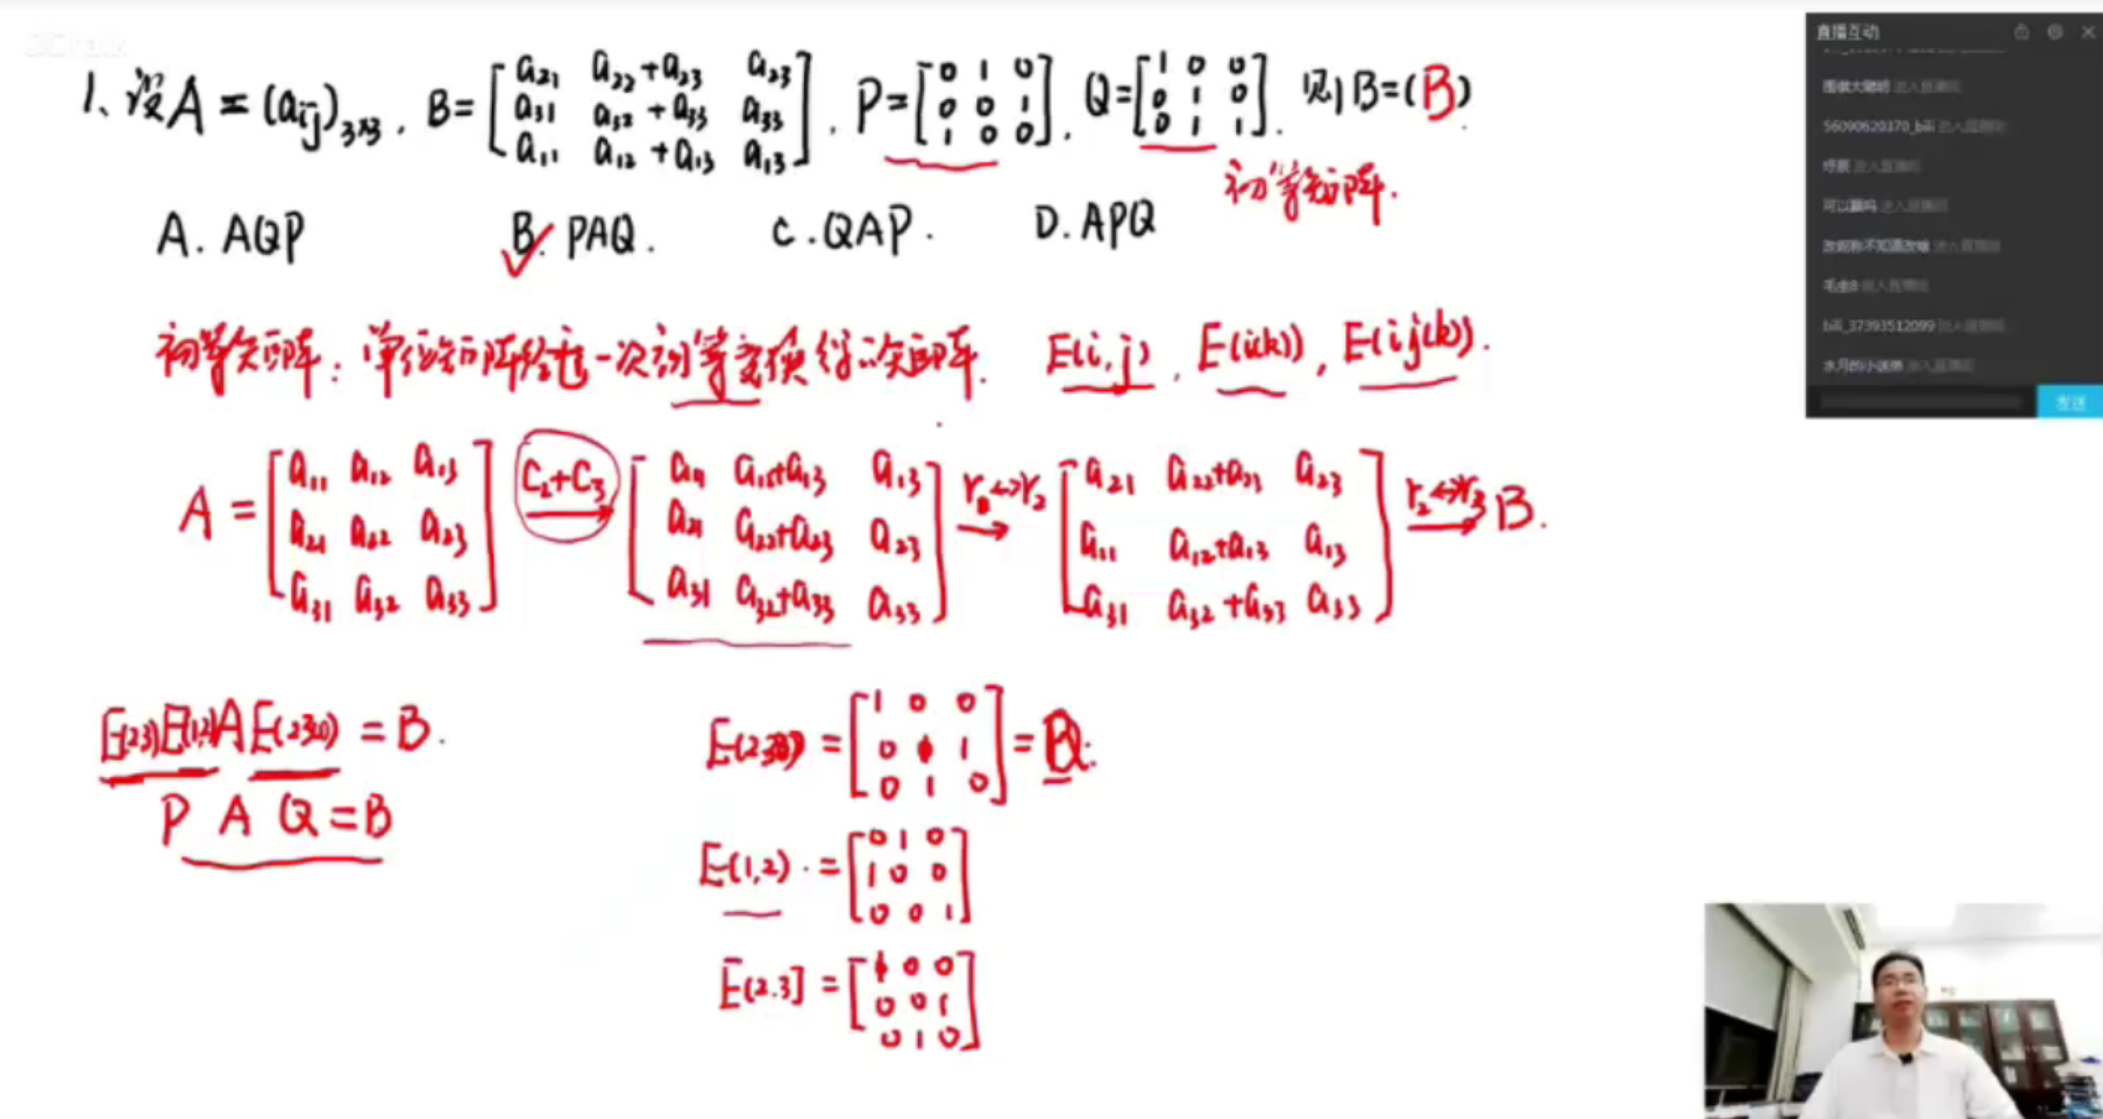 1、设A=(aij)3×3, B=[a21 a22+a23 a23; a31 a32+a33 a33; a11 a12+a13 a13], P=[0 1 0; 0 0 1; 1 0 0], Q=[1 0 0; 0 1 0; 0 1 1]. 则B=(B)
初等矩阵.
A. AQP B. PAQ. C. QAP. D. APQ
初等矩阵: 单位矩阵经过一次初等变换得的矩阵. E(i,j), E(i(k)), E(ij(k)).
A=[a11 a12 a13; a21 a22 a23; a31 a32 a33] C2+C3→ [a11 a12+a13 a13; a21 a22+a23 a23; a31 a32+a33 a33] r1↔r2→ [a21 a22+a23 a23; a11 a12+a13 a13; a31 a32+a33 a33] r2↔r3→ B.
E(2,3)E(1,2)A = B.
P A Q = B
= [1 0 0; 0 1; 0 1 0] = Q.
E(1,2) = [0 1 0; 1 0 0; 0 0 1]
E(2.3] = [1 0 0; 0 0 1; 0 1 0]
直播互动
56090620370_bili 进入直播间
可以赢吗 进入直播间
bili_37393512099 进入直播间
发送